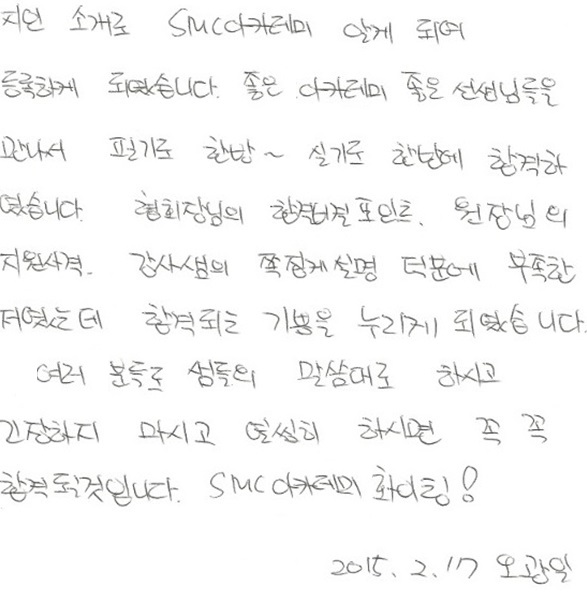 지인 소개로 SMC아카데미 알게 되어
등록하게 되었습니다. 좋은 아카데미 좋은 선생님들을
만나서 필기도 한방~ 실기도 한번에 합격하
였습니다. 협회장님의 합격비결 포인트, 원장님의
지원사격. 강사샘의 쪽집게설명 덕분에 부족한
저였는데 합격되는 기쁨을 누리게 되었습니다.
여러 분들도 샘들의 말씀대로 하시고
긴장하지 마시고 열씸히 하시면 꼭 꼭
합격될것입니다. SMC아카데미 화이팅!
2015. 2. 17 오광일